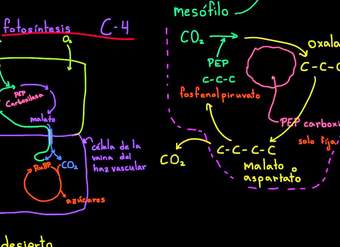 fotosíntesis C-4
O₂
PEP
Carboxilasa
malato
célula de la
vaina del
haz vascular
RuBP
CO₂
azúcares
desierto
mesófilo
CO₂
PEP
C-C-C
fosfenolpiruvato
oxala
C-C-C
PEP carboxi
solo fija
C-C-C-C
malato o
aspartato
CO₂